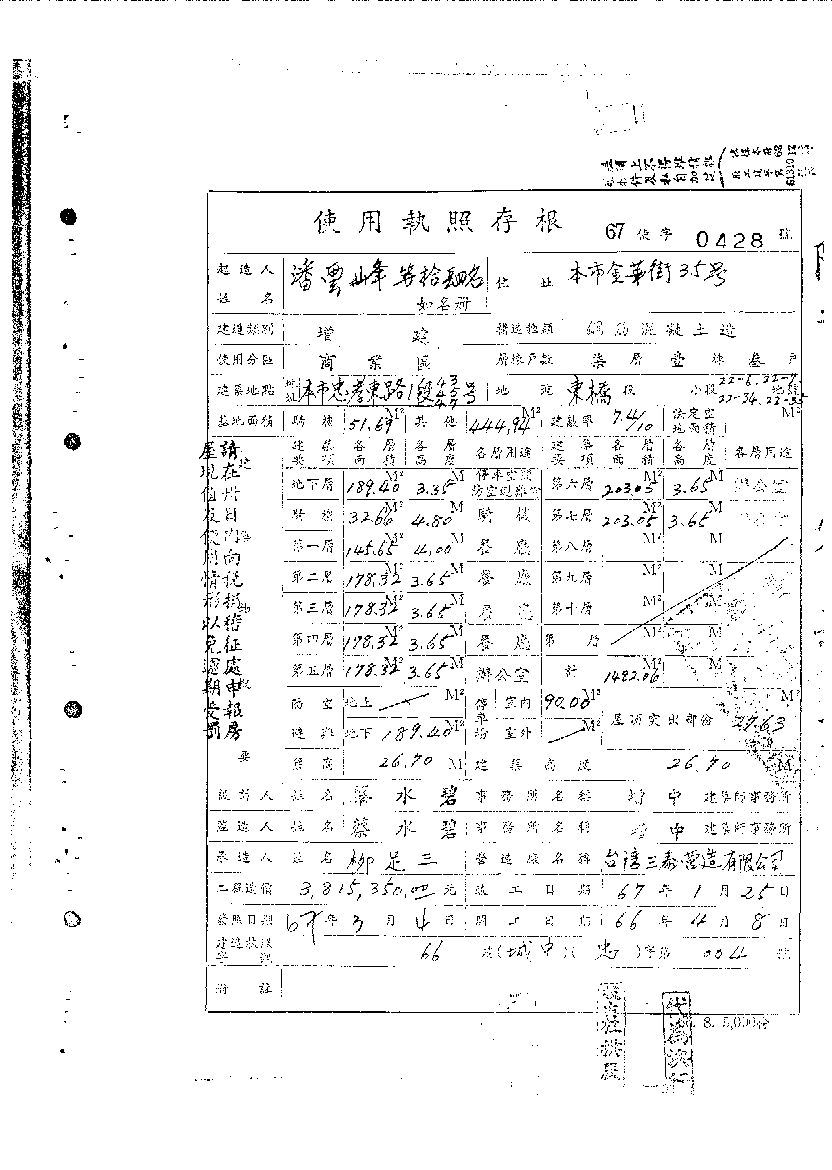 使用執照存根 67 使字 0428 號
起造人姓名 潘雲峰等拾四名 如名冊 住址 本市金華街35号
建造類別 增建 構造種類 鋼筋混凝土造
使用分區 商業區 層棟戶數 柒層壹棟叁戶
建築地點 本市忠孝東路1段 号 地 東橋段 小段 22-6,22-7 地號
22-34,22-35
基地面積 騎樓 51.69 M² 其他 444.94 M² 建蔽率 7.4/10 法定空地面積 M²
建築要項 各層面積 各層高度 各層用途 建築要項 各層面積 各層高度 各層用途
地下層 189.40 M² 3.35 M 停車空間 第六層 203.05 M² 3.65 M 辦公室
騎樓 32.66 M² 4.80 M 騎樓 第七層 203.05 M² 3.65 M 辦公室
第一層 145.65 M² 4.00 M 餐廳 第八層 M² M
第二層 178.32 M² 3.65 M 餐廳 第九層 M² M
第三層 178.32 M² 3.65 M 餐廳 第十層 M² M
第四層 178.32 M² 3.65 M 餐廳 第 層 M² M
第五層 178.32 M² 3.65 M 辦公室 計 1492.06 M² M
防空避難 地上 M² 停車場 室內 90.00 M² 屋頂突出部份 27.63 M²
地下 189.40 M² 室外 M²
簷高 26.70 M 建築高度 26.70 M
設計人 姓名 蔡水碧 事務所名稱 建築師事務所
監造人 姓名 蔡水碧 事務所名稱 建築師事務所
承造人 姓名 柳是三 營造廠名稱 營造有限公司
工程造價 3,815,350.00 元 竣工日期 67年1月25日
發照日期 67年3月4日 開工日期 66年4月8日
建造執照字號 66 建(城中)(忠)字第 004 號
附註
請在所目內向稅捐稽征處申報房
屋現值及使用情形以免逾期受罰
8. 5,000份